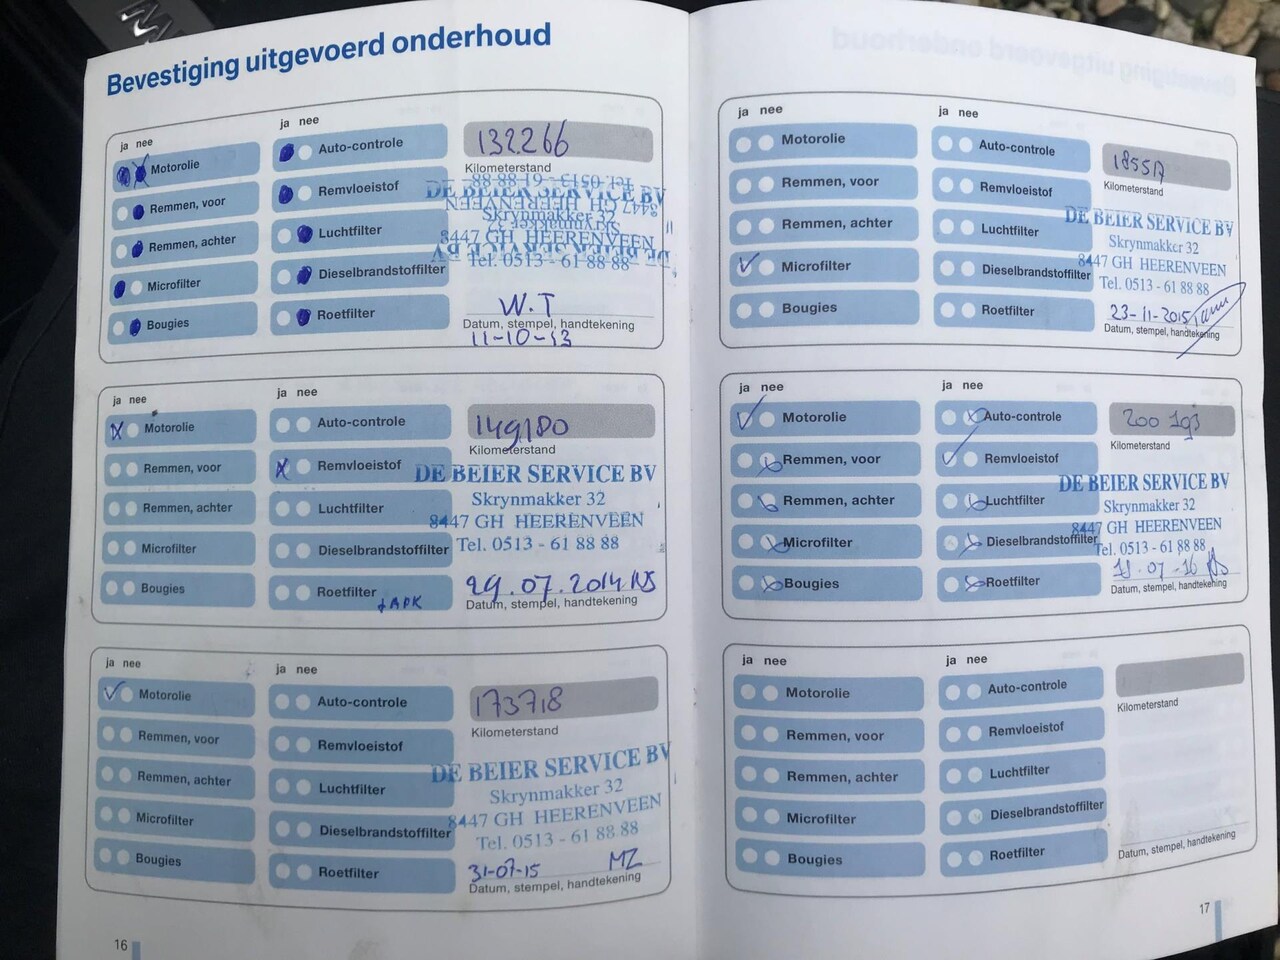 Bevestiging uitgevoerd onderhoud
ja nee
Motorolie
Remmen, voor
Remmen, achter
Microfilter
Bougies
ja nee
Auto-controle
Remvloeistof
Luchtfilter
Dieselbrandstoffilter
Roetfilter
132266
Kilometerstand
DE BEIER SERVICE BV
Skrynmakker 32
8447 GH HEERENVEEN
Tel. 0513 - 61 88 88
W.T
Datum, stempel, handtekening
11-10-13
ja nee
Motorolie
Remmen, voor
Remmen, achter
Microfilter
Bougies
ja nee
Auto-controle
Remvloeistof
Luchtfilter
Dieselbrandstoffilter
Roetfilter
+ APK
149180
Kilometerstand
DE BEIER SERVICE BV
Skrynmakker 32
8447 GH HEERENVEEN
Tel. 0513 - 61 88 88
29.07.2014
Datum, stempel, handtekening
ja nee
Motorolie
Remmen, voor
Remmen, achter
Microfilter
Bougies
ja nee
Auto-controle
Remvloeistof
Luchtfilter
Dieselbrandstoffilter
Roetfilter
173718
Kilometerstand
DE BEIER SERVICE BV
Skrynmakker 32
8447 GH HEERENVEEN
Tel. 0513 - 61 88 88
31-07-15 MZ
Datum, stempel, handtekening
16
ja nee
Motorolie
Remmen, voor
Remmen, achter
Microfilter
Bougies
ja nee
Auto-controle
Remvloeistof
Luchtfilter
Dieselbrandstoffilter
Roetfilter
Kilometerstand
DE BEIER SERVICE BV
Skrynmakker 32
8447 GH HEERENVEEN
Tel. 0513 - 61 88 88
23-11-2015
Datum, stempel, handtekening
ja nee
Motorolie
Remmen, voor
Remmen, achter
Microfilter
Bougies
ja nee
Auto-controle
Remvloeistof
Luchtfilter
Dieselbrandstoffilter
Roetfilter
200 193
Kilometerstand
DE BEIER SERVICE BV
Skrynmakker 32
8447 GH HEERENVEEN
Tel. 0513 - 61 88 88
Datum, stempel, handtekening
ja nee
Motorolie
Remmen, voor
Remmen, achter
Microfilter
Bougies
ja nee
Auto-controle
Remvloeistof
Luchtfilter
Dieselbrandstoffilter
Roetfilter
Kilometerstand
Datum, stempel, handtekening
17